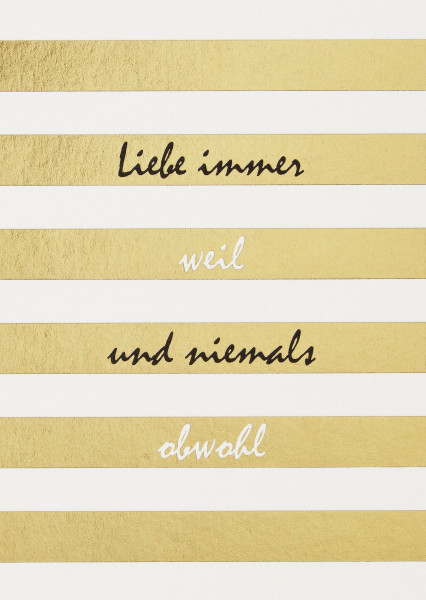 Liebe immer
weil
und niemals
obwohl